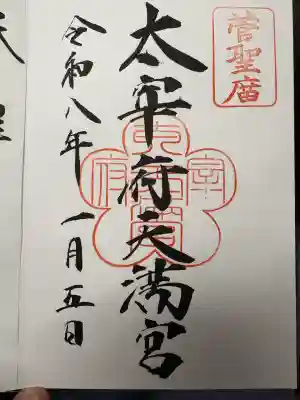 菅聖庿
太宰府天満宮
令和八年 一月五日